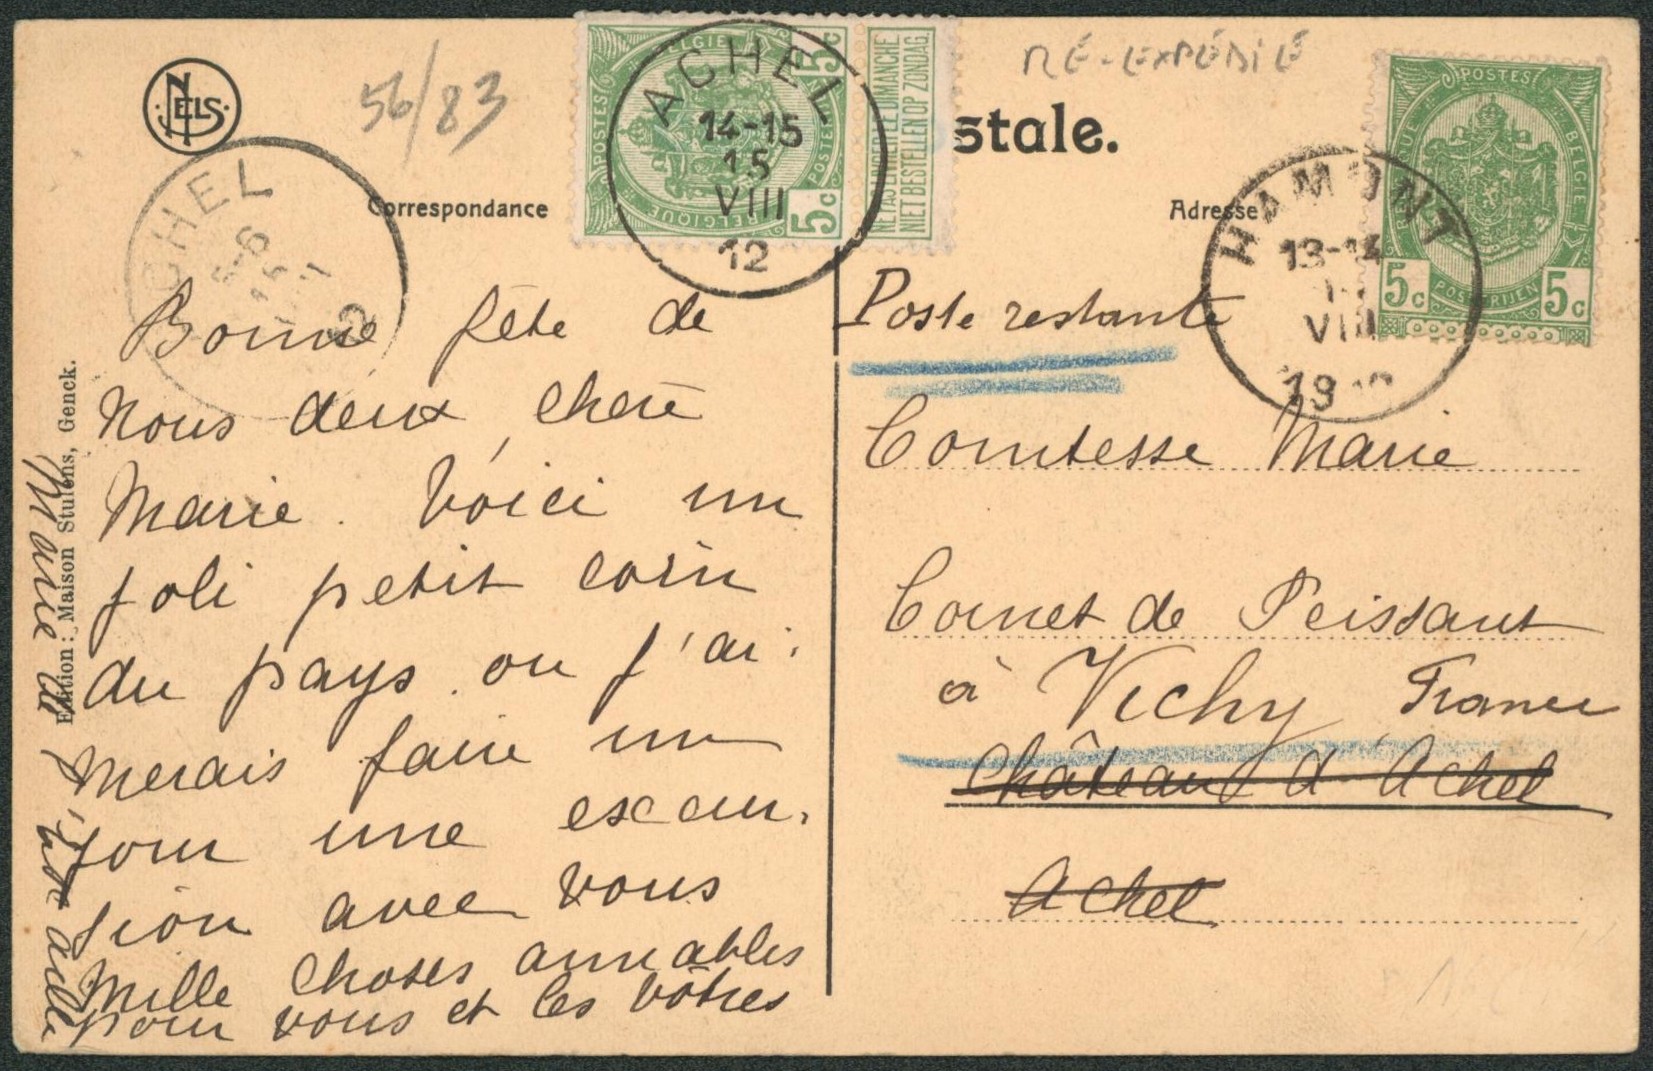 NELS
56/83
RÉ-EXPÉDIÉ
stale.
POSTES BELGIE
5c 5c
POSTES BELGIQUE
POSTERIJEN
NE PAS LIVRER LE DIMANCHE
NIET BESTELLEN OP ZONDAG
ACHEL
14-15
15
VIII
12
POSTES
BELGIQUE BELGIE
5c POSTERIJEN 5c
HAMONT
13-14
VIII
19
CHEL
Correspondance
Adresse
Bonne fête de
nous deux, chère
Marie. Voici un
joli petit coin
du pays ou j'ai-
merais faire un
jour une excur-
sion avec vous
Mille choses aimables
pour vous et les vôtres
Marie
Edition: Maison Stulens, Genck.
Poste restante
Comtesse Marie
Cornet de Peissant
à Vichy France
Château d'Achel
Achel